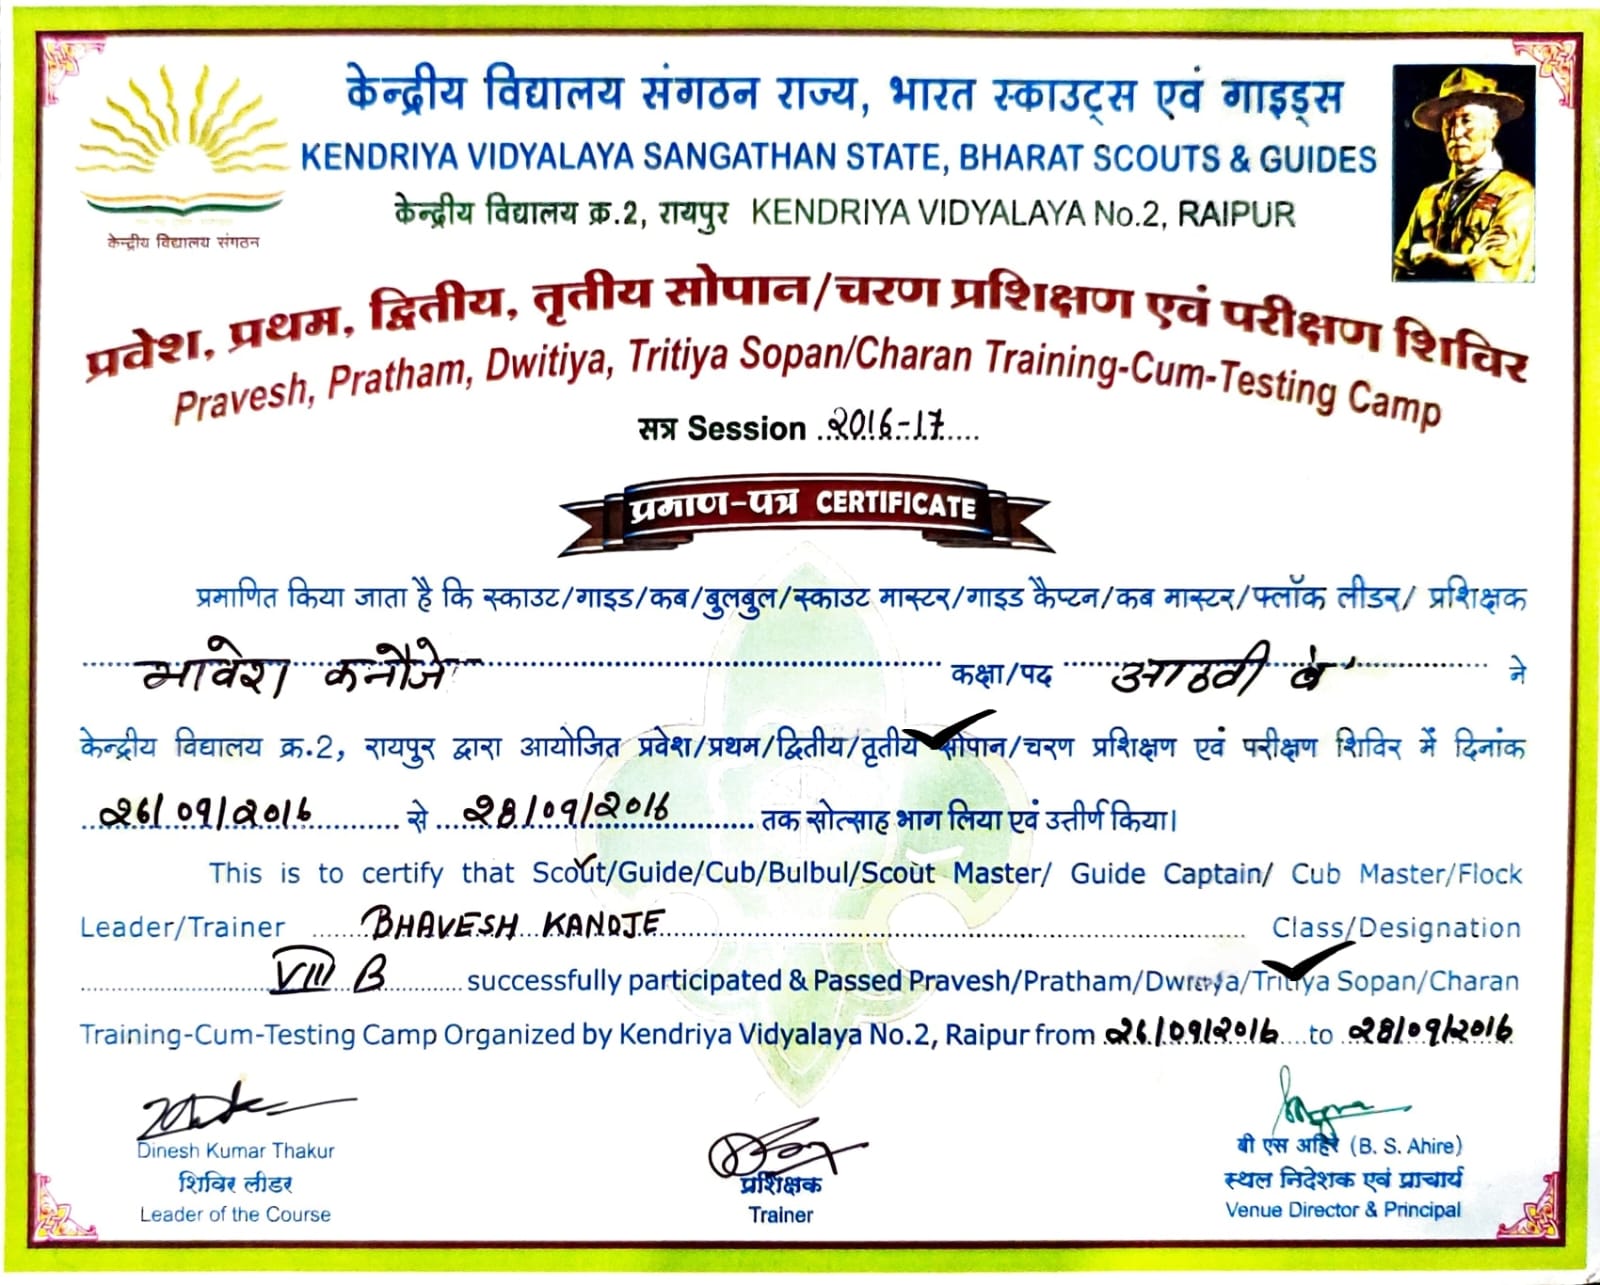 केन्द्रीय विद्यालय संगठन राज्य, भारत स्काउट्स एवं गाइड्स
KENDRIYA VIDYALAYA SANGATHAN STATE, BHARAT SCOUTS & GUIDES
केन्द्रीय विद्यालय क्र.2, रायपुर KENDRIYA VIDYALAYA No.2, RAIPUR
केन्द्रीय विद्यालय संगठन
प्रवेश, प्रथम, द्वितीय, तृतीय सोपान/चरण प्रशिक्षण एवं परीक्षण शिविर
Pravesh, Pratham, Dwitiya, Tritiya Sopan/Charan Training-Cum-Testing Camp
सत्र Session 2016-17
प्रमाण-पत्र CERTIFICATE
प्रमाणित किया जाता है कि स्काउट/गाइड/कब/बुलबुल/स्काउट मास्टर/गाइड कैप्टन/कब मास्टर/फ्लॉक लीडर/ प्रशिक्षक
भावेश कनौजे कक्षा/पद आठवी ब ने
केन्द्रीय विद्यालय क्र.2, रायपुर द्वारा आयोजित प्रवेश/प्रथम/द्वितीय/तृतीय सोपान/चरण प्रशिक्षण एवं परीक्षण शिविर में दिनांक
26/09/2016 से 28/09/2016 तक सोत्साह भाग लिया एवं उत्तीर्ण किया।
This is to certify that Scout/Guide/Cub/Bulbul/Scout Master/ Guide Captain/ Cub Master/Flock
Leader/Trainer BHAVESH KANOJE Class/Designation
VIII B successfully participated & Passed Pravesh/Pratham/Dwitiya/Tritiya Sopan/Charan
Training-Cum-Testing Camp Organized by Kendriya Vidyalaya No.2, Raipur from 26/09/2016 to 28/09/2016
Dinesh Kumar Thakur
शिविर लीडर
Leader of the Course
प्रशिक्षक
Trainer
बी एस अहिरे (B. S. Ahire)
स्थल निदेशक एवं प्राचार्य
Venue Director & Principal